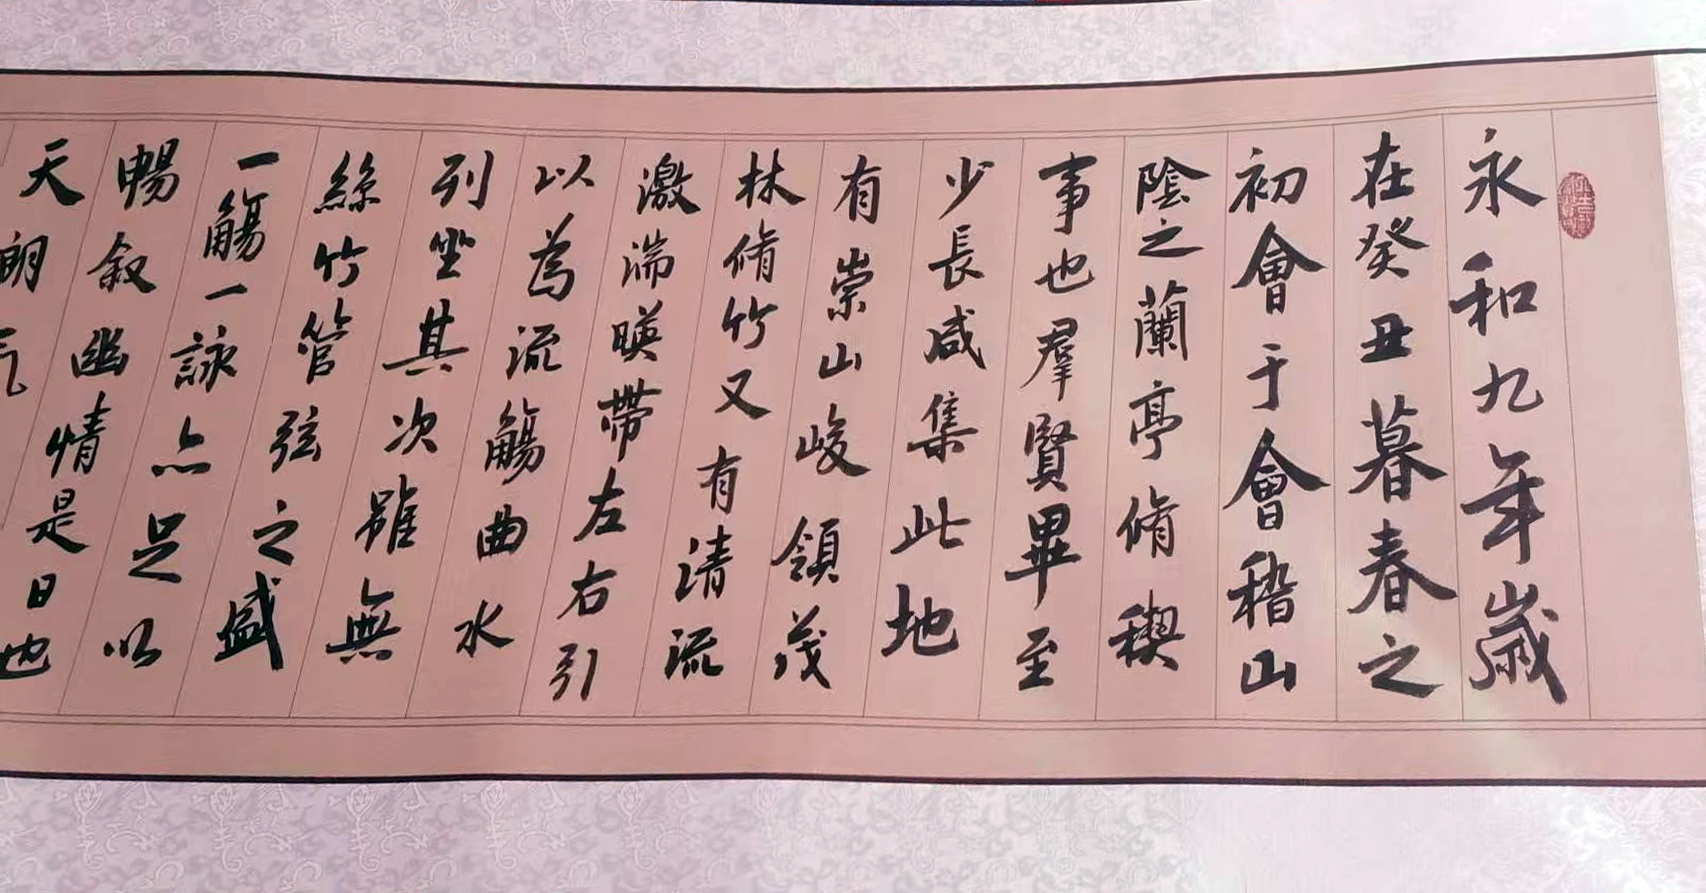 永和九年歲
在癸丑暮春之
初會于會稽山
陰之蘭亭脩稧
事也羣賢畢至
少長咸集此地
有崇山峻領茂
林脩竹又有清流
激湍暎帶左右引
以為流觴曲水
列坐其次雖無
絲竹管弦之盛
一觴一詠亦足以
暢叙幽情是日也
天朗气